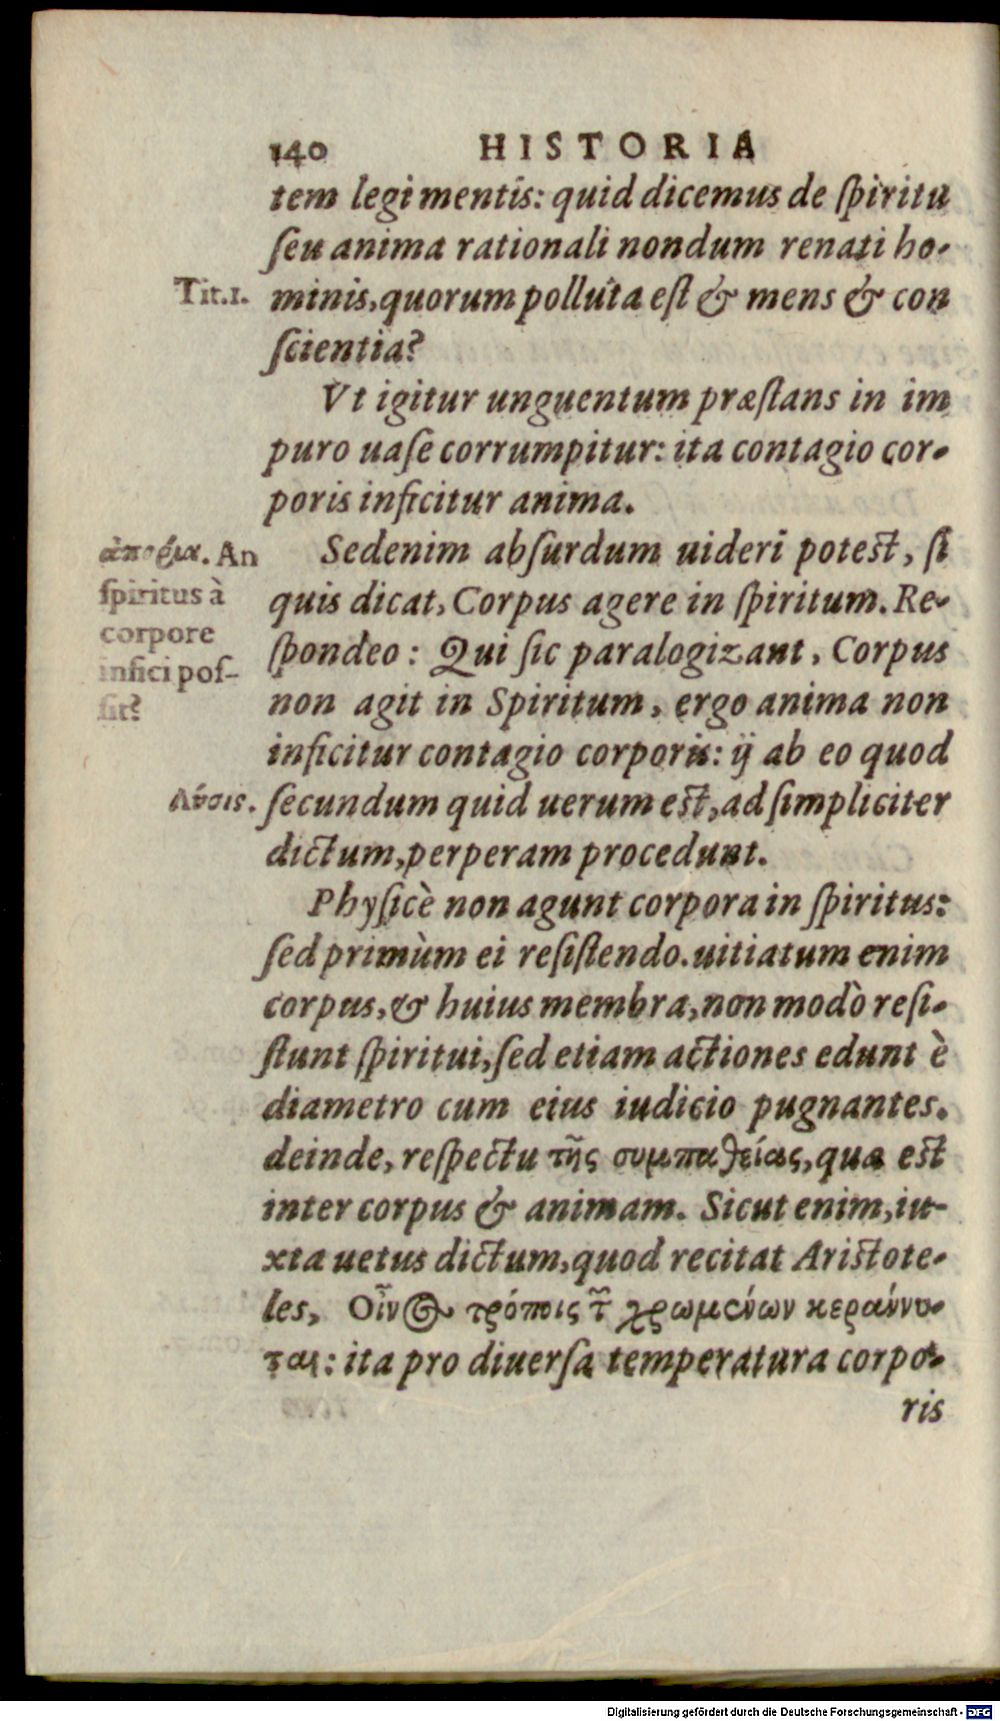 140 HISTORIA
tem legi mentis: quid dicemus de ſpiritu
ſeu anima rationali nondum renati ho-
Tit.1.
minis, quorum polluta eſt & mens & con
ſcientia?
Vt igitur unguentum præſtans in im
puro uaſe corrumpitur: ita contagio cor-
poris inficitur anima.
ἀπορία. An
spiritus à
corpore
infici poſ-
ſit?
Sedenim abſurdum uideri poteſt, ſi
quis dicat, Corpus agere in ſpiritum. Re-
ſpondeo: Qui ſic paralogizant, Corpus
non agit in Spiritum, ergo anima non
inficitur contagio corporis: ij ab eo quod
Λύσις.
ſecundum quid uerum eſt, ad ſimpliciter
dictum, perperam procedunt.
Phyſicè non agunt corpora in ſpiritus:
ſed primùm ei reſiſtendo. uitiatum enim
corpus, & huius membra, non modò reſi-
ſtunt ſpiritui, ſed etiam actiones edunt è
diametro cum eius iudicio pugnantes.
deinde, reſpectu τῆς συμπαθείας, quæ eſt
inter corpus & animam. Sicut enim, iu-
xta uetus dictum, quod recitat Ariſtote-
les, Οἶνος τρόποις τῶν χρωμένων κεράννυ-
ται: ita pro diuerſa temperatura corpo-
ris
Digitalisierung gefördert durch die Deutsche Forschungsgemeinschaft - DFG